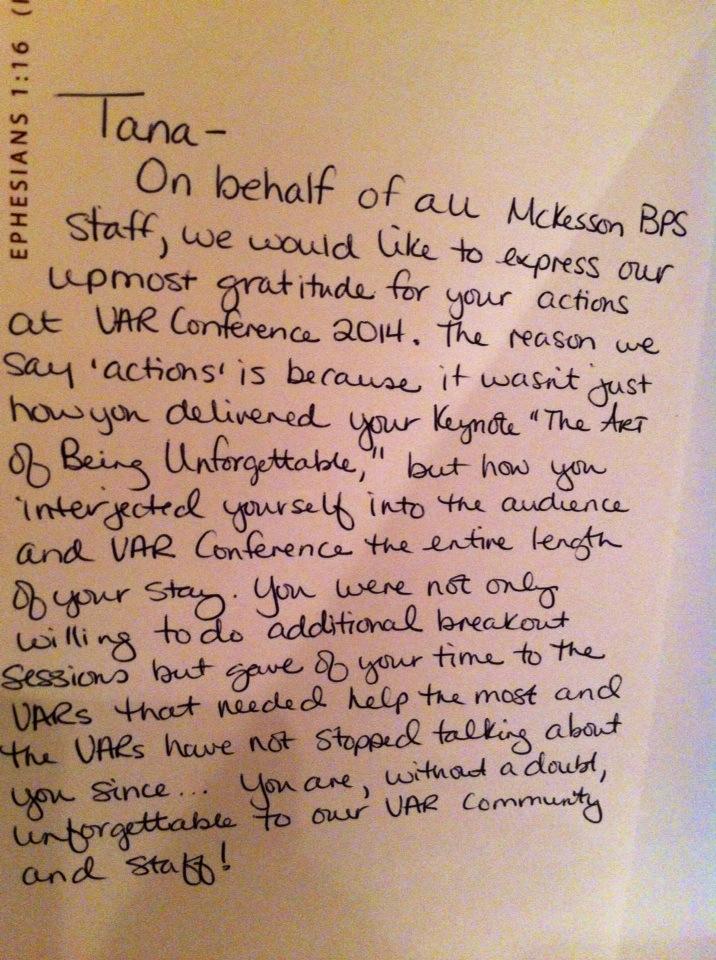 EPHESIANS 1:16
Tana-
On behalf of all McKesson BPS
Staff, we would like to express our
upmost gratitude for your actions
at VAR Conference 2014. The reason we
say 'actions' is because it wasn't just
how you delivered your Keynote "The Art
of Being Unforgettable," but how you
interjected yourself into the audience
and VAR Conference the entire length
of your stay. You were not only
willing to do additional breakout
sessions but gave of your time to the
VARs that needed help the most and
the VARs have not stopped talking about
you since... You are, without a doubt,
unforgettable to our VAR Community
and Staff!